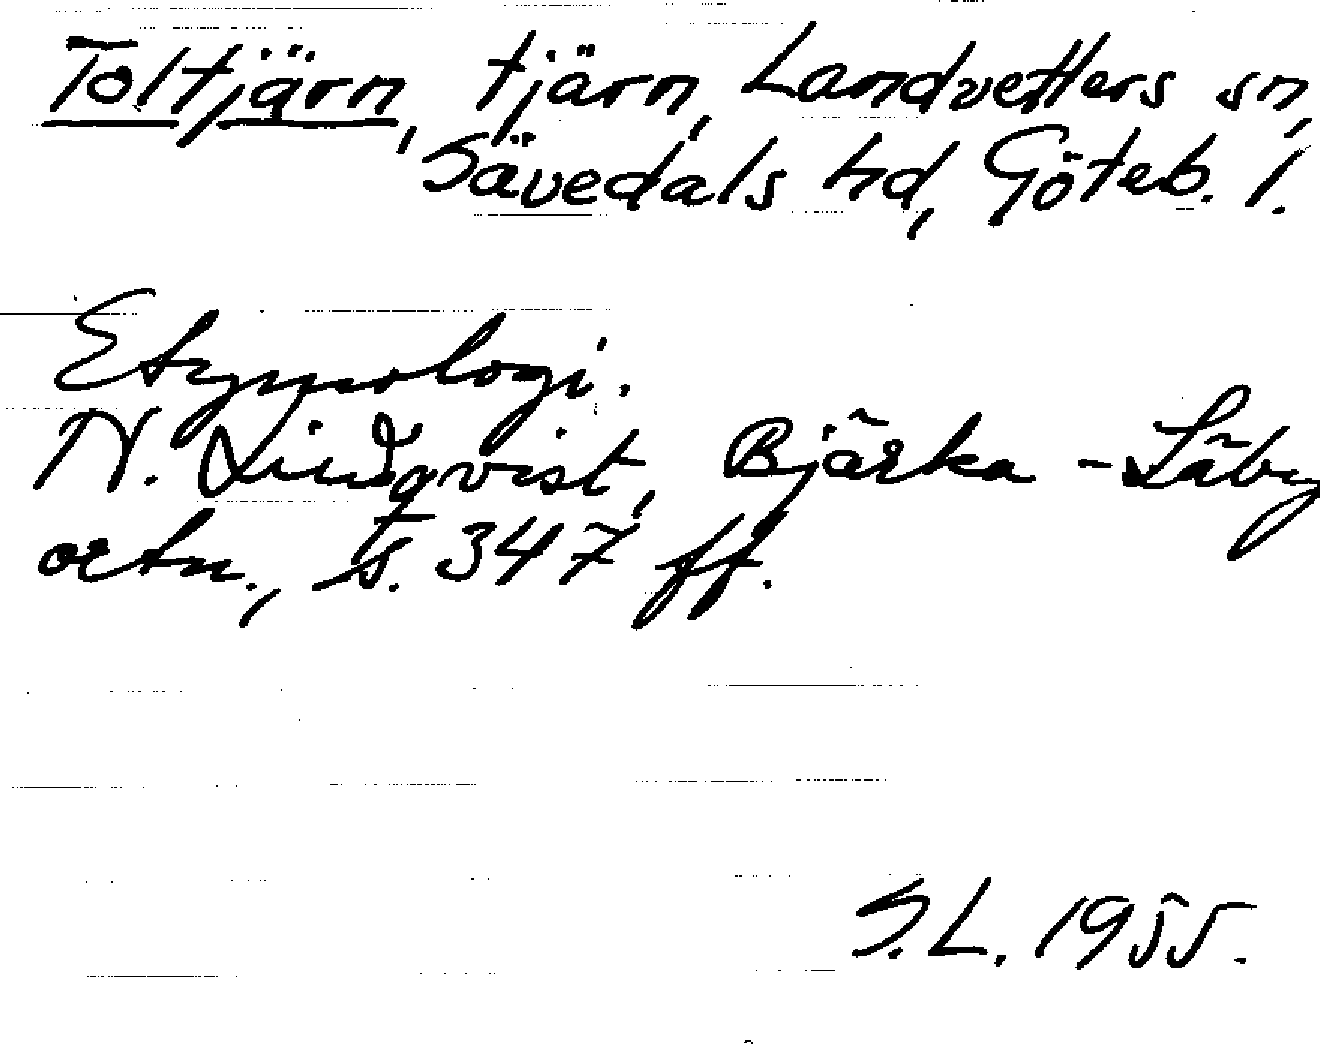 Toltjärn, tjärn, Landvetters sn,
Sävedals hd, Göteb. l.
Etymologi.
N. Lindqvist, Bjärka-Säby
ortn., s. 347 ff.
S.L. 1955.